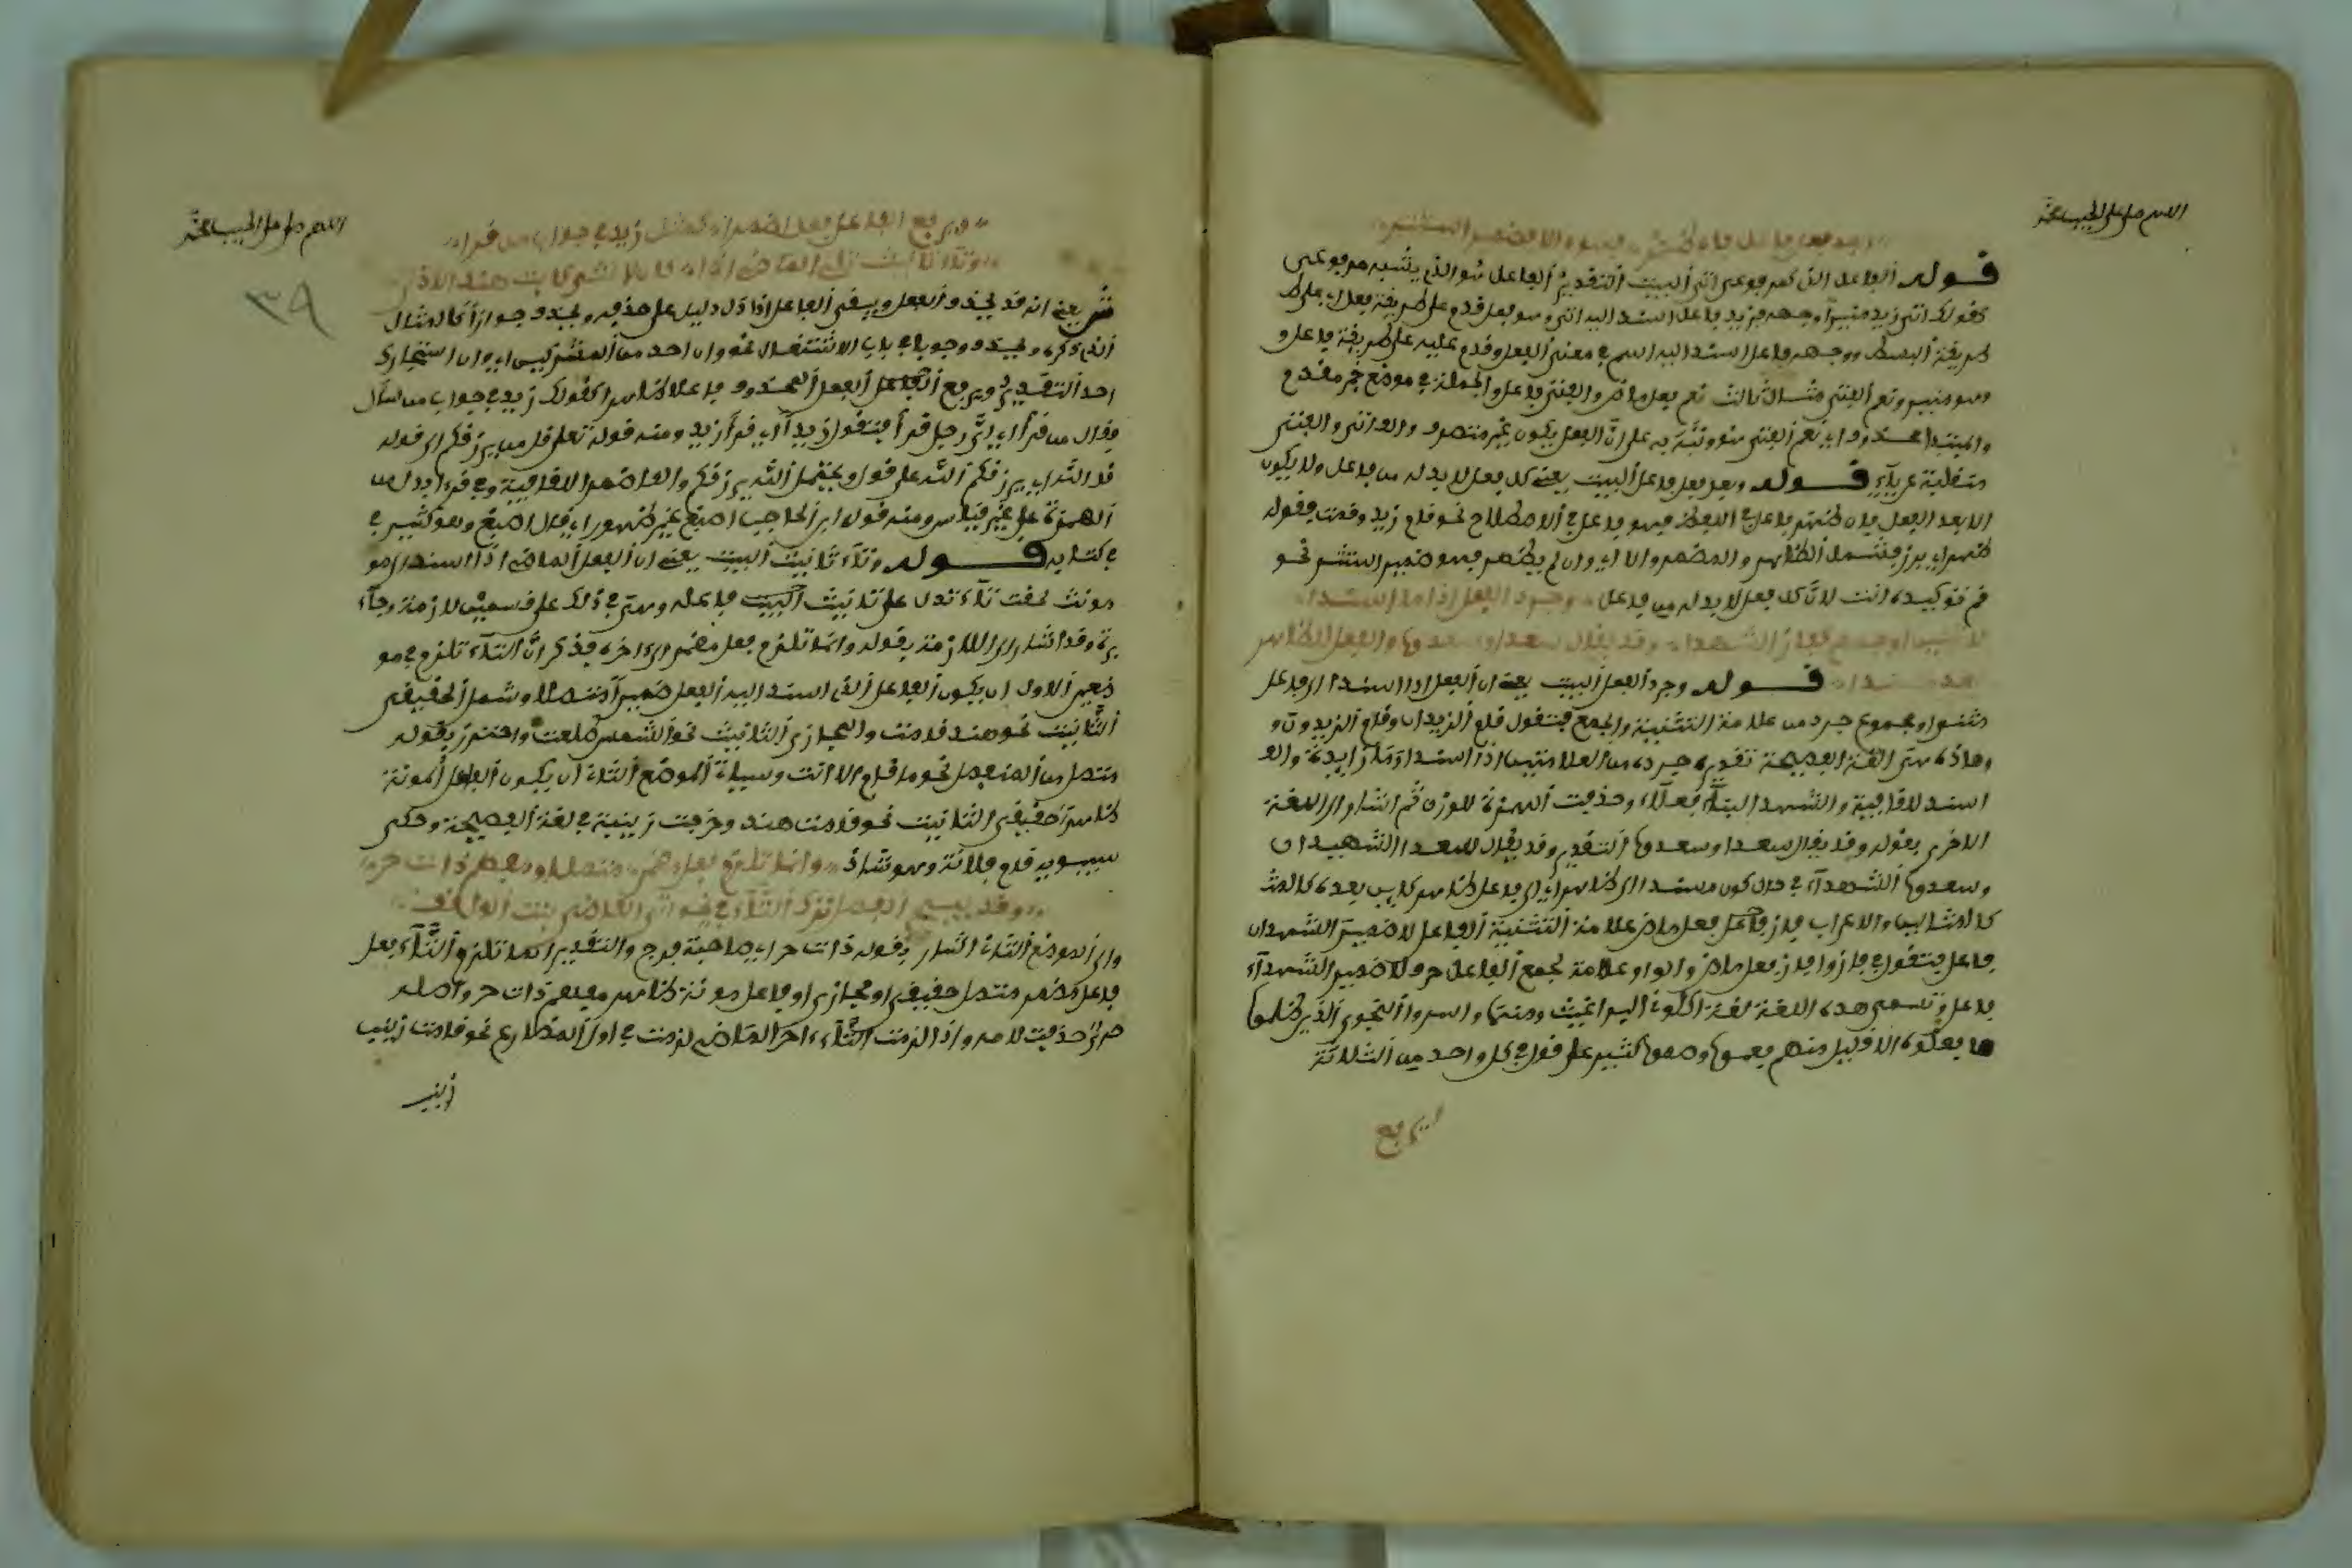 اللهم صل على الحبيب محمد
وبعد فعل فاعل فان ظهر فهو والا فضمير استتر
قوله الفاعل الذي كمرفوعي اتى البيت التقدير الفاعل هو الذي يشبه مرفوعي
كقولك اتى زيد منيرا وجهه فزيد فاعل اسند اليه اتى وهو فعل قدم على طريقة فعل اي على
طريقة البسط ووجهه فاعل اسند اليه اسم في معنى الفعل وقدم عليه على طريقة فاعل و
وهو منير ونعم الفتى مثال ثالث نعم فعل ماض والفتى فاعل والجملة في موضع خبر مقدم
والمبتدا محذوف اي نعم الفتى هو ونبه به على ان الفعل يكون غير متصرف والف اتى والفتى
منقلبة عن ياء قوله وبعد فعل فاعل البيت يعني كل فعل لا بد له من فاعل ولا يكون
الا بعد الفعل فان ظهر فاعل في اللفظ فهو فاعل في الاصطلاح نحو قام زيد وقمت فقوله
ظهر اي برز فشمل الظاهر والمضمر والا اي وان لم يظهر فهو ضمير استتر نحو
قم فتوكيده انت لان كل فعل لا بد له من فاعل وجرد الفعل اذا ما اسندا
لاثنين او جمع كفاز الشهدا وقد يقال سعدا وسعدوا والفعل للظاهر
بعد مسند قوله وجرد الفعل البيت يعني ان الفعل اذا اسند الى فاعل
مثنى او مجموع جرد من علامة التثنية والجمع فتقول قام الزيدان وقام الزيدون و
وهاذه هي اللغة الفصيحة تقديره جرده من العلامتين اذا اسند وما زايدة والف
اسند للقافية والشهداء فعلاء وحذفت الهمزة للوزن ثم اشار الى اللغة
الاخرى بقوله وقد يقال سعدا وسعدوا التقدير وقد يقال سعدا الشهيدان
وسعدوا الشهداء في حال كون مسندا الى ظاهر اي الى فاعل ظاهر كاين بعده كالمث
كالمثالين والاعراب فاز فاعل فعل ماض علامة التثنية الفاعل لا ضمير الشهدان
فاعل فتقول في فازوا فاز فعل ماض والواو علامة لجمع الفاعل حرف لا ضمير الشهداء
فاعل وتسمى هذه اللغة لغة اكلوني البراغيث ومنه واسروا النجوى الذين ظلموا
ما فعلوه الا قليل منهم فعموا وصموا كثير على قول في كل واحد من الثلاثة
ويرفع
اللهم صل على الحبيب محمد
٣٩
ويرفع الفاعل فعل اضمرا كمثل زيد في جواب من قرا
وتاء تانيث تلي الماضي اذا كان لانثى كابت هند الاذى
يعني انه قد يحذف الفعل ويبقى الفاعل اذا دل دليل على حذفه ويحذف جوازا كالمثال
الذي ذكره ويحذف وجوبا في باب الاشتغال نحو وان احد من المشركين اي وان استجارك
احد التقدير ويرفع الفاعل الفعل المحذوف فاعلا ظاهرا كقولك زيد في جواب من سال
فقال من قرا اي اي رجل قرا فتقول زيد اي قرا زيد ومنه قوله تعلى قل من يرزقكم الى قوله
قل الله اي يرزقكم الله على قول ويحتمل الله يرزقكم والف اضمرا للقافية وفي قرا ابدل من
الهمزة على غير قياس ومنه قول ابن الحاجب اصبغ غير ظهورا اي قال اصبغ وهو كثير في
في كتابه قوله وتاء تانيث البيت يعني ان الفعل الماضي اذا اسند الى مو
مونث لحقت تاء تدل على تانيث البيت فاعله وهي في ذلك على قسمين لازمة وجاء
يزة وقد اشار الى اللازمة بقوله وانما تلزم فعل مضمر الى اخره فذكر ان التاء تلزم في مو
ضعين الاول ان يكون الفاعل الذي اسند اليه الفعل ضميرا متصلا وشمل الحقيقي
التانيث نحو هند قامت والمجازي التانيث نحو الشمس طلعت واحترز بقوله
متصل من المنفصل نحو ما قام الا انت وسياتي الموضع الثاني ان يكون الفاعل المونث
ظاهرا حقيقي التانيث نحو قامت هند وخرجت زينب في لغة الفصيحة وحكى
سيبويه قام فلانة وهو شاذ وانما تلزم فعل مضمر متصل او مفهم ذات حر
وقد يبيح الفصل ترك التاء في نحو اتى القاضي بنت الواقف
والى الموضع الثاني اشار بقوله ذات حر اي صاحبة فرج والتقدير انما تلزم التاء فعل
فاعل مضمر متصل حقيقي او مجازي او فاعل مونث ظاهر مفهم ذات حر واصله
حرح حذفت لامه واذا لزمت التاء اخر الماضي لزمت في اول المضارع نحو قامت زينب